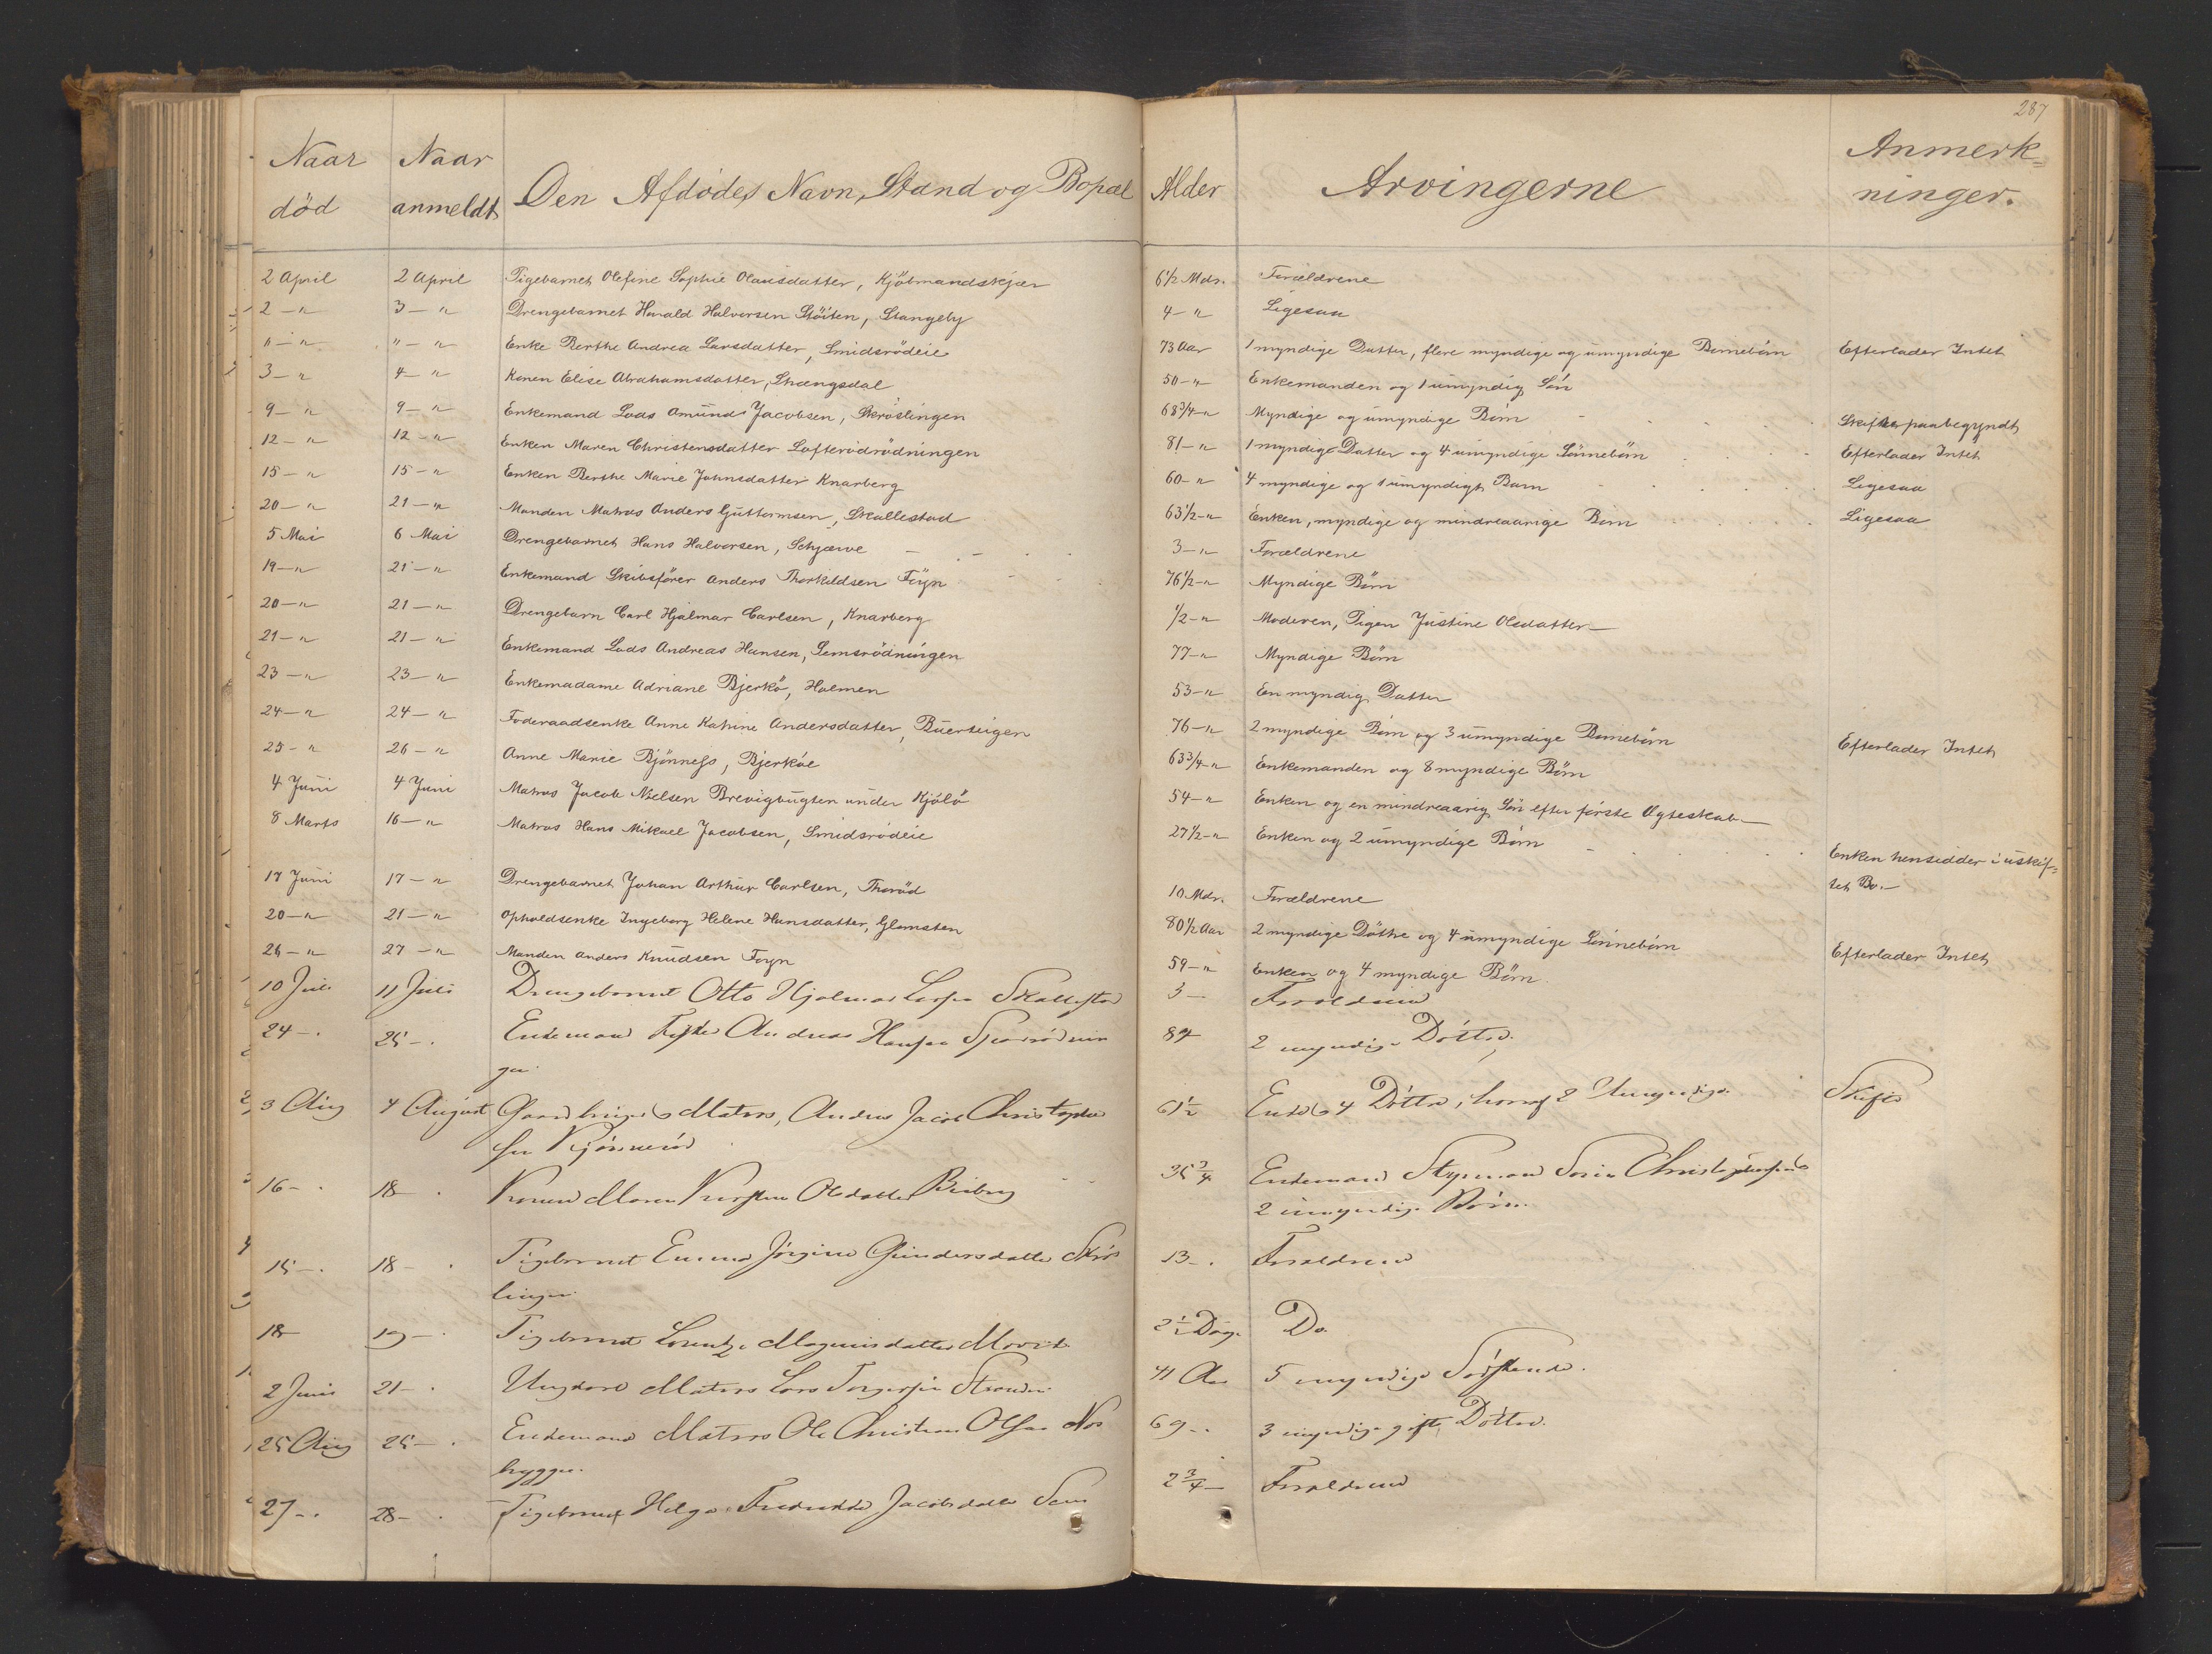 287
Naar død	Naar anmeldt	Den Afdødes Navn, Stand og Bopæl	Alder	Arvingerne	Anmerk=ninger.
2 April	2 April	Pigebarnet Olefine Sophie Olausdatter, Kjøbmandskjær	6 1/2 Mdr.	Forældrene
2 — "	3 — "	Drengebarnet Harald Halvorsen Støiten, Stangeby	4 — "	Ligesaa
" — "	" — "	Enke Berthe Andrea Larsdatter, Smidsrødeie	73 Aar	1 myndige Datter, flere myndige og umyndige Børnebørn	Efterlader Intet
3 — "	4 — "	Konen Elise Abrahamsdatter, Strengsdal	50 — "	Enkemanden og 1 umyndig Søn
9 — "	9 — "	Enkemand Lods Amund Jacobsen, Skrøslingen	68 3/4 — "	Myndige og umyndige Børn	Skifte paabegyndt
12 — "	12 — "	Enken Maren Christensdatter Lofterødrødningen	81 — "	1 myndige Datter og 4 umyndige Sønnebørn	Efterlader Intet
15 — "	15 — "	Enken Berthe Marie Johnsdatter Knarberg	60 — "	4 myndige og 1 umyndigt Barn	Ligesaa
20 — "	21 — "	Manden Matros Anders Guttormsen, Skallestad	63 1/2 — "	Enken, myndige og mindreaarige Børn	Ligesaa
5 Mai	6 Mai	Drengebarnet Hans Halvorsen, Schjærve	3 — "	Forældrene
19 — "	21 — "	Enkemand Skibsfører Anders Thorkildsen Føyn	76 1/2 — "	Myndige Børn
20 — "	21 — "	Drengebarn Carl Hjalmar Carlsen, Knarberg	1/2 — "	Moderen, Pigen Justine Olsdatter —
21 — "	21 — "	Enkemand Lods Andreas Hansen, Semsrødningen	77 — "	Myndige Børn
23 — "	23 — "	Enkemadame Adriane Bjerkø, Holmen	53 — "	En myndig Datter
24 — "	24 — "	Foderaadsenke Anne Katrine Andersdatter, Buerstigen	76 — "	2 myndige Børn og 3 umyndige Børnebørn	Efterlader Intet
25 — "	26 — "	Anne Marie Bjønness, Bjerkøe	63 3/4 — "	Enkemanden og 8 myndige Børn
4 Juni	4 Juni	Matros Jacob Nielsen Brevigbugten under Kjølø	54 — "	Enken og en mindreaarig Søn efter første Ægteskab —
8 Marts	16 — "	Matros Hans Mikael Jacobsen, Smidsrødeie	27 1/2 — "	Enken og 2 umyndige Børn	Enken hensidder i uskif=
tet Bo. —
17 Juni	17 — "	Drengebarnet Johan Arthur Carlsen, Thorød	10 Mdr.	Forældrene
20 — "	21 — "	Opholdsenke Ingeborg Helene Hansdatter, Glomsten	80 1/2 Aar	2 myndige Døttre og 4 umyndige Sønnebørn	Efterlader Intet
26 — "	27 — "	Manden Anders Knudsen Føyn	59 — "	Enken og 4 myndige Børn.
10 Juli	11 Juli	Drengebarnet Otto Hjalmar Skallestad	3 —	Forældrene
24 — .	25 — .	Enkemand Andreas Hansen	84	2 myndige Døttre.
3 Aug	4 August	Matros, Andreas Jacob Christophersen	61 1/2	Enke & 4 Døttre, hvoraf 2 Umyndige.	Skifte
16 — .	18 — .	Konen Maren Olsdatter	35 3/4	Enkemand Styrmand Christophersen &
2 umyndige Børn.
15 — .	18 — .	Pigebarnet Emma Jørgine Gundersdatter Skrøs
lingen.	13 — .	Forældrene
18	19 — .	Pigebarnet Lorentze Magnusdatter	2 1/2 Dage	Do.
2 Juni	21 — .	Ungkarl Matros Lars Torgersen Stranden	41 Aar	5 myndige Søskende.
25 Aug	25 — .	Enkemand Matros Ole Christian Olsen Nor
bygge.	69 — .	3 myndige gifte Døttre.
27 — .	28 — .	Pigebarnet Helga Fredrikke Jacobsdatter Sem	2 3/4 —	Forældrene